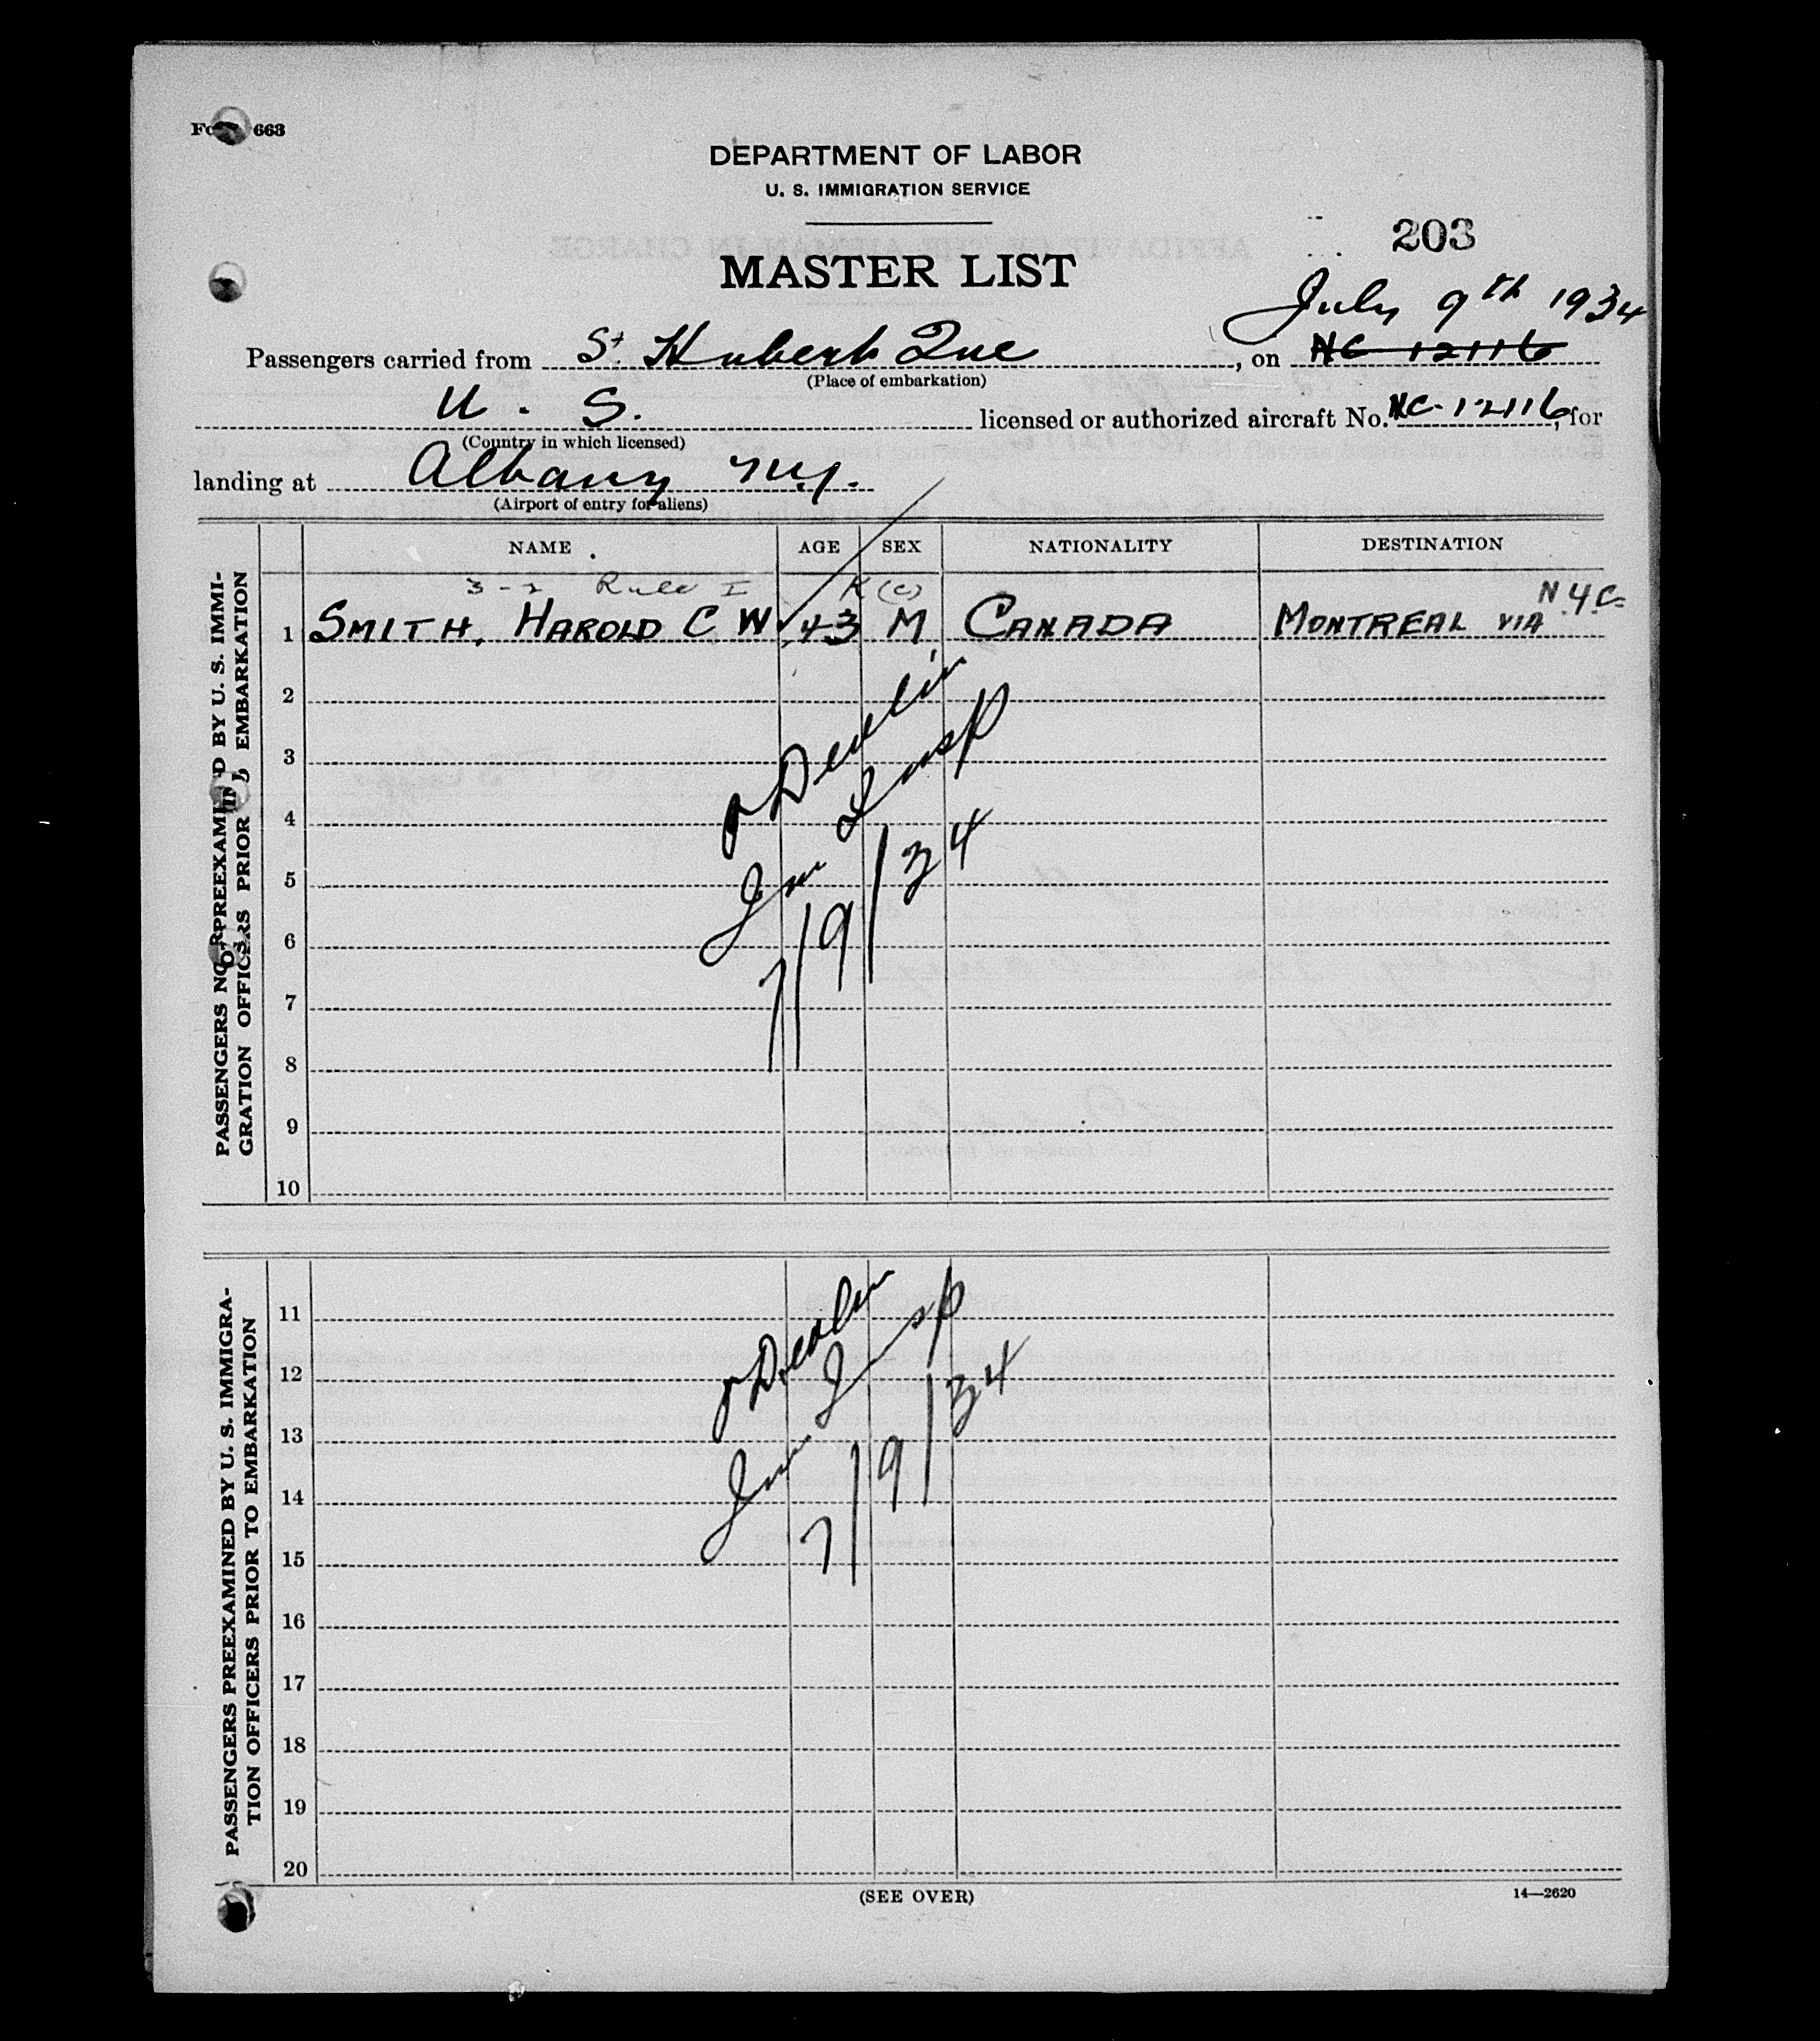 Form 663
DEPARTMENT OF LABOR
U. S. IMMIGRATION SERVICE
203
MASTER LIST
July 9th 1934
Passengers carried from St. Hubert Que, on NC 12116
(Place of embarkation)
U. S. licensed or authorized aircraft No. NC-12116, for
(Country in which licensed)
landing at Albany N.Y.
(Airport of entry for aliens)
NAME AGE SEX NATIONALITY DESTINATION
3-2 Rule I K (c)
1 SMITH, HAROLD C W 43 M CANADA MONTREAL VIA N.Y.C.
2
3
4
5
6
7
8
9
10
PASSENGERS NOT PREEXAMINED BY U. S. IMMI-
GRATION OFFICERS PRIOR TO EMBARKATION
Devlin
Imm Insp
7/9/34
11
12
13
14
15
16
17
18
19
20
PASSENGERS PREEXAMINED BY U. S. IMMIGRA-
TION OFFICERS PRIOR TO EMBARKATION
Devlin
Imm Insp
7/9/34
(SEE OVER)
14—2620